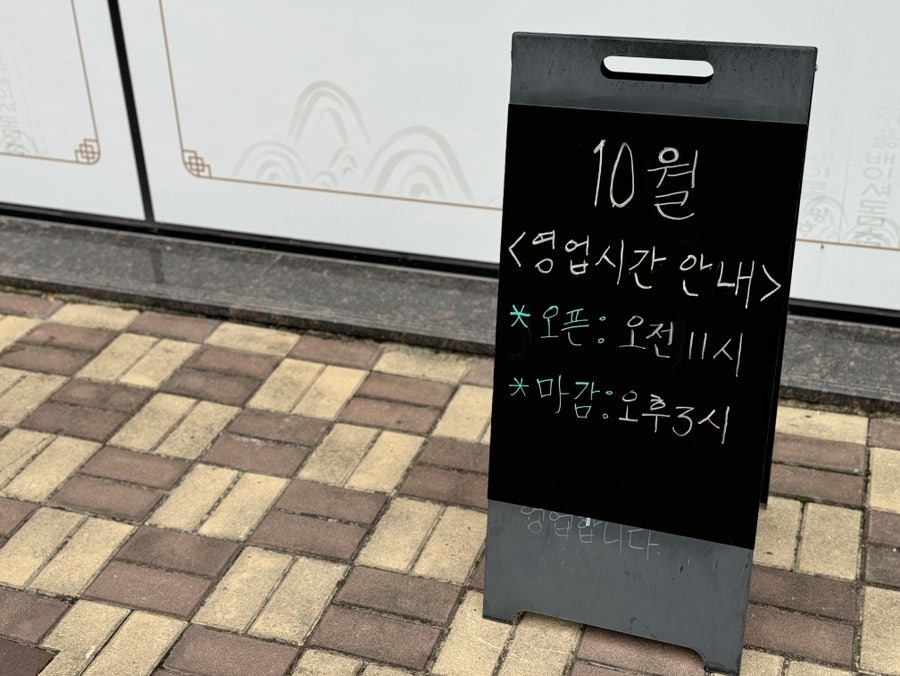 10월
<영업시간 안내>
* 오픈: 오전 11시
* 마감: 오후 3시
영업합니다.